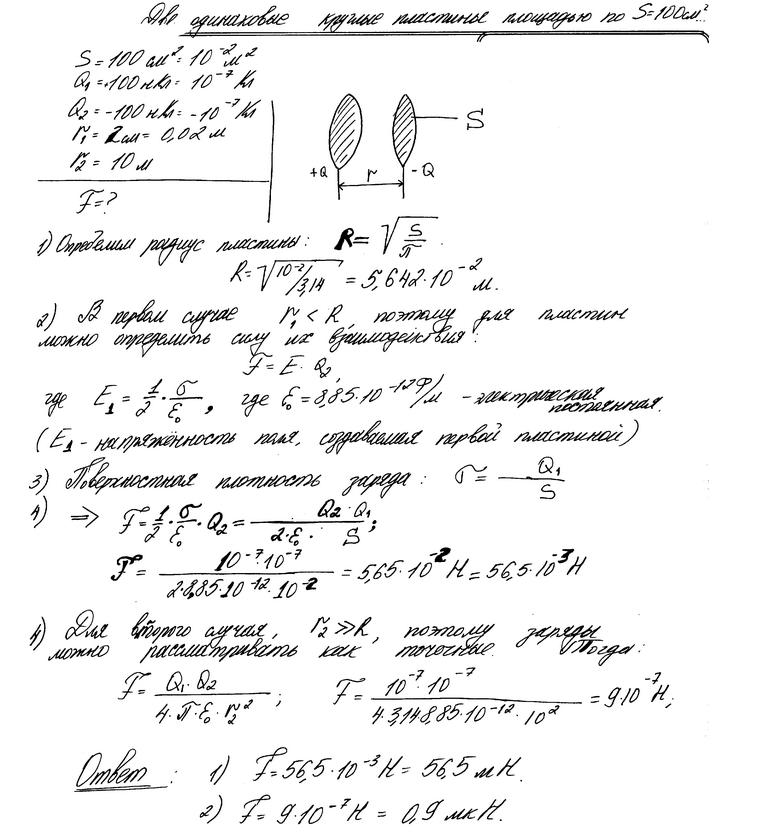 Две одинаковые круглые пластины площадью по S=100см²..
S = 100 см² = 10⁻² м²
Q₁ = 100 нКл = 10⁻⁷ Кл
Q₂ = -100 нКл = -10⁻⁷ Кл
r₁ = 2см = 0,02 м
r₂ = 10 м
F = ?
S
+Q r -Q
1) Определим радиус пластины: R = √(S/π).
R = √(10⁻²/3,14) = 5,642·10⁻² м.
2) В первом случае r₁ < R, поэтому для пластин
можно определить силу их взаимодействия:
F = E · Q₂,
где E₁ = 1/2 · σ/ε₀, где ε₀ = 8,85·10⁻¹² Ф/м - электрическая постоянная.
(E₁ - напряжённость поля, создаваемая первой пластиной)
3) Поверхностная плотность заряда: σ = Q₁/S
4) ⇒ F = 1/2 · σ/ε₀ · Q₂ = Q₂·Q₁/(2·ε₀·S);
F = 10⁻⁷·10⁻⁷/(2·8,85·10⁻¹²·10⁻²) = 5,65·10⁻² Н = 56,5·10⁻³ Н
4) Для второго случая, r₂ ≫ R, поэтому заряды
можно рассматривать как точечные. Тогда:
F = Q₁·Q₂/(4·π·ε₀·r₂²); F = 10⁻⁷·10⁻⁷/(4·3,14·8,85·10⁻¹²·10²) = 9·10⁻⁷ Н;
Ответ: 1) F = 56,5·10⁻³ Н = 56,5 мН.
2) F = 9·10⁻⁷ Н = 0,9 мкН.